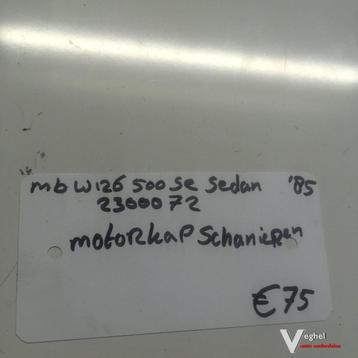 mb W126 500 SE Sedan '85
2300072
motorkap Schanieren
€75
Veghel